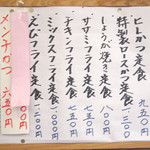 ヒレかつ定食 九五〇円
特製ロースかつ定食
しょうが焼き定食 八〇〇円
ササミフライ定食 七五〇円
チキンフライ定食 七五〇円
ミックスフライ定食 一、〇〇〇円
えびフライ定食 一、二〇〇円
メンチかつ 六五〇円